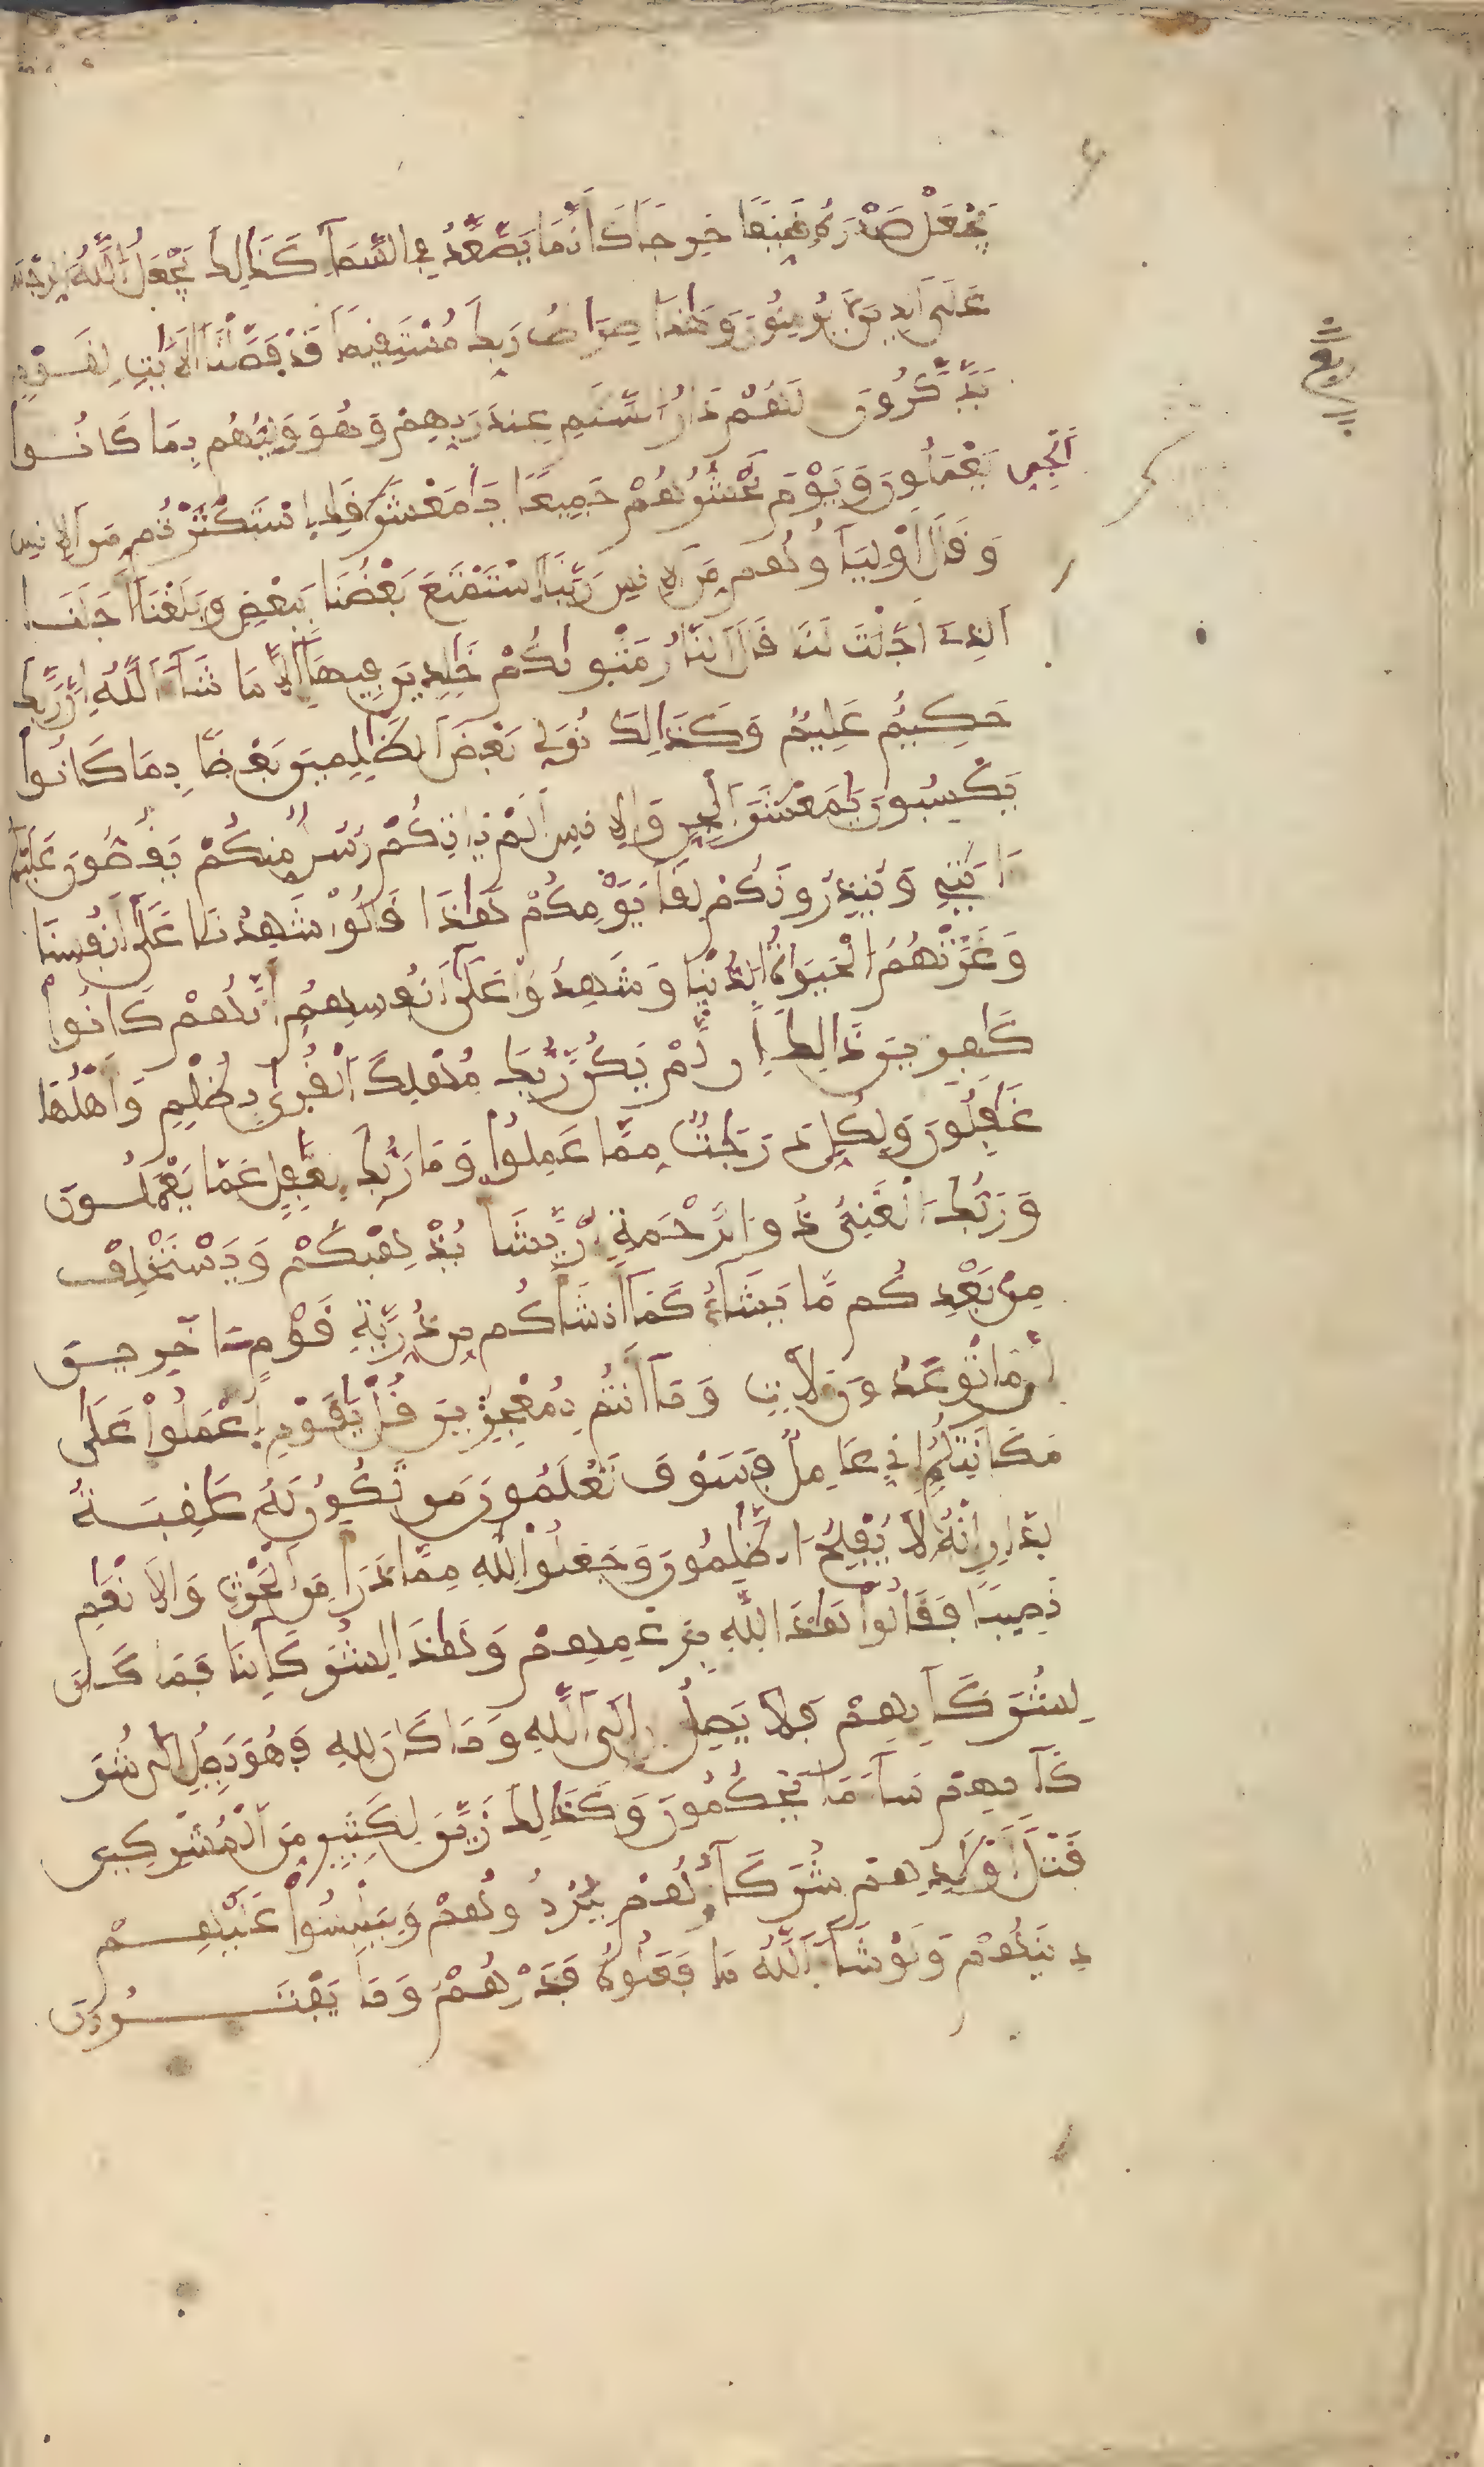 يَجْعَلْ صَدْرَهُ ضَيِّقًا حَرِجًا كَأَنَّمَا يَصَّعَّدُ فِي السَّمَآءِ كَذَٰلِكَ يَجْعَلُ اللَّهُ الرِّجْسَ
عَلَى الَّذِينَ لَا يُومِنُونَ وَهَٰذَا صِرَٰطُ رَبِّكَ مُسْتَقِيمًا قَدْ فَصَّلْنَا الْأَيَٰتِ لِقَوْمٍ
يَذَّكَّرُونَ لَهُمْ دَارُ السَّلَٰمِ عِندَ رَبِّهِمْ وَهُوَ وَلِيُّهُم بِمَا كَانُوا
يَعْمَلُونَ وَيَوْمَ نَحْشُرُهُمْ جَمِيعًا يَٰمَعْشَرَ الْجِنِّ قَدِ اسْتَكْثَرْتُم مِّنَ الْإِنسِ
وَقَالَ أَوْلِيَآؤُهُم مِّنَ الْإِنسِ رَبَّنَا اسْتَمْتَعَ بَعْضُنَا بِبَعْضٍ وَبَلَغْنَا أَجَلَنَا
الَّذِي أَجَّلْتَ لَنَا قَالَ النَّارُ مَثْوَىٰكُمْ خَٰلِدِينَ فِيهَا إِلَّا مَا شَآءَ اللَّهُ إِنَّ رَبَّكَ
حَكِيمٌ عَلِيمٌ وَكَذَٰلِكَ نُوَلِّي بَعْضَ الظَّٰلِمِينَ بَعْضًا بِمَا كَانُوا
يَكْسِبُونَ يَٰمَعْشَرَ الْجِنِّ وَالْإِنسِ أَلَمْ يَاتِكُمْ رُسُلٌ مِّنكُمْ يَقُصُّونَ عَلَيْكُمْ
ءَايَٰتِي وَيُنذِرُونَكُمْ لِقَآءَ يَوْمِكُمْ هَٰذَا قَالُوا شَهِدْنَا عَلَىٰ أَنفُسِنَا
وَغَرَّتْهُمُ الْحَيَوٰةُ الدُّنْيَا وَشَهِدُوا عَلَىٰ أَنفُسِهِمُ أَنَّهُمْ كَانُوا
كَٰفِرِينَ ذَٰلِكَ أَن لَّمْ يَكُن رَّبُّكَ مُهْلِكَ الْقُرَىٰ بِظُلْمٍ وَأَهْلُهَا
غَٰفِلُونَ وَلِكُلٍّ دَرَجَٰتٌ مِّمَّا عَمِلُوا وَمَا رَبُّكَ بِغَٰفِلٍ عَمَّا يَعْمَلُونَ
وَرَبُّكَ الْغَنِيُّ ذُو الرَّحْمَةِ إِن يَّشَأْ يُذْهِبْكُمْ وَيَسْتَخْلِفْ
مِن بَعْدِكُم مَّا يَشَآءُ كَمَا أَنشَأَكُم مِّن ذُرِّيَّةِ قَوْمٍ ءَاخَرِينَ
إِنَّ مَا تُوعَدُونَ لَأَتٍ وَمَا أَنتُم بِمُعْجِزِينَ قُلْ يَٰقَوْمِ اعْمَلُوا عَلَىٰ
مَكَانَتِكُمُ إِنِّي عَامِلٌ فَسَوْفَ تَعْلَمُونَ مَن تَكُونُ لَهُ عَٰقِبَةُ
الدِّارِ إِنَّهُ لَا يُفْلِحُ الظَّٰلِمُونَ وَجَعَلُوا لِلَّهِ مِمَّا ذَرَأَ مِنَ الْحَرْثِ وَالْأَنْعَٰمِ
نَصِيبًا فَقَالُوا هَٰذَا لِلَّهِ بِزَعْمِهِمْ وَهَٰذَا لِشُرَكَآئِنَا فَمَا كَانَ
لِشُرَكَآئِهِمْ فَلَا يَصِلُ إِلَى اللَّهِ وَمَا كَانَ لِلَّهِ فَهُوَ يَصِلُ إِلَىٰ شُرَ
كَآئِهِمْ سَآءَ مَا يَحْكُمُونَ وَكَذَٰلِكَ زَيَّنَ لِكَثِيرٍ مِّنَ الْمُشْرِكِينَ
قَتْلَ أَوْلَٰدِهِمْ شُرَكَآؤُهُمْ لِيُرْدُوهُمْ وَلِيَلْبِسُوا عَلَيْهِمْ
دِينَهُمْ وَلَوْ شَآءَ اللَّهُ مَا فَعَلُوهُ فَذَرْهُمْ وَمَا يَفْتَرُونَ